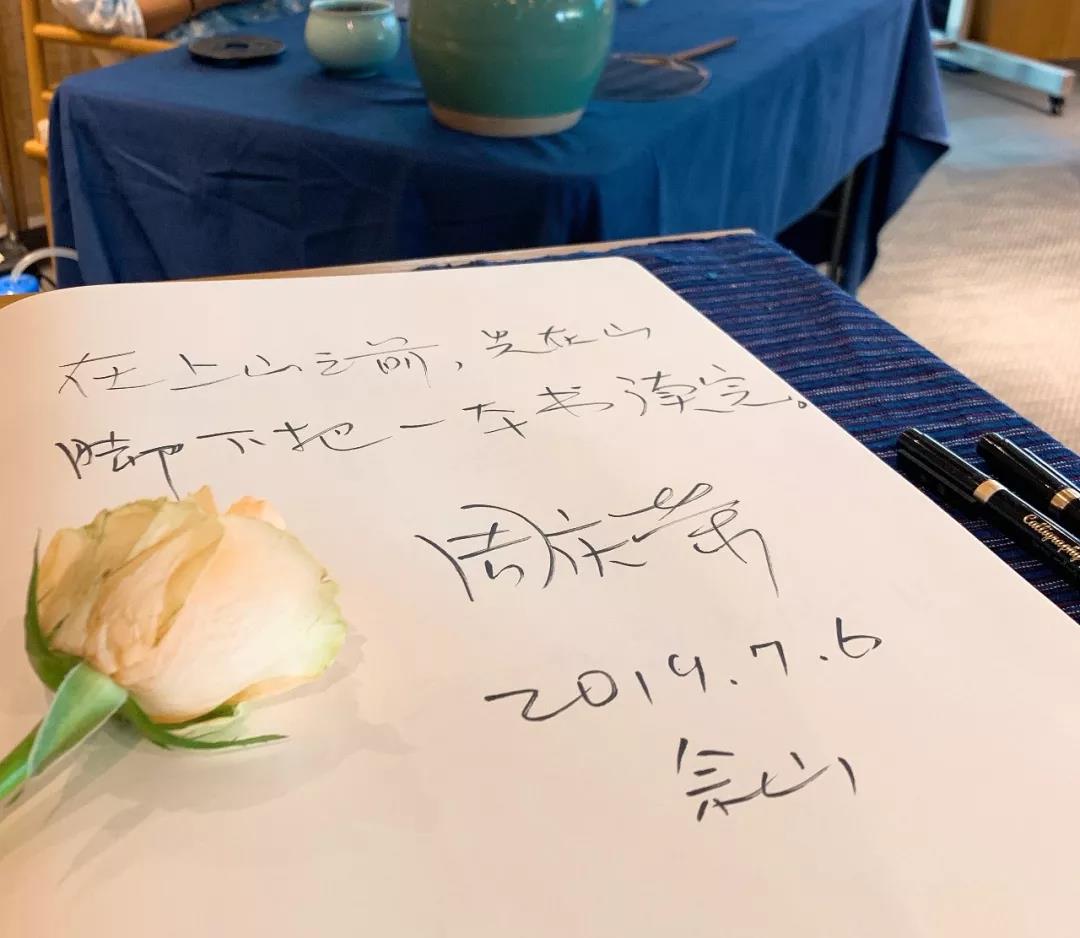 在上山之前，先在山
脚下把一本书读完。
周庆荣
2019.7.6
佘山
Calligraphy